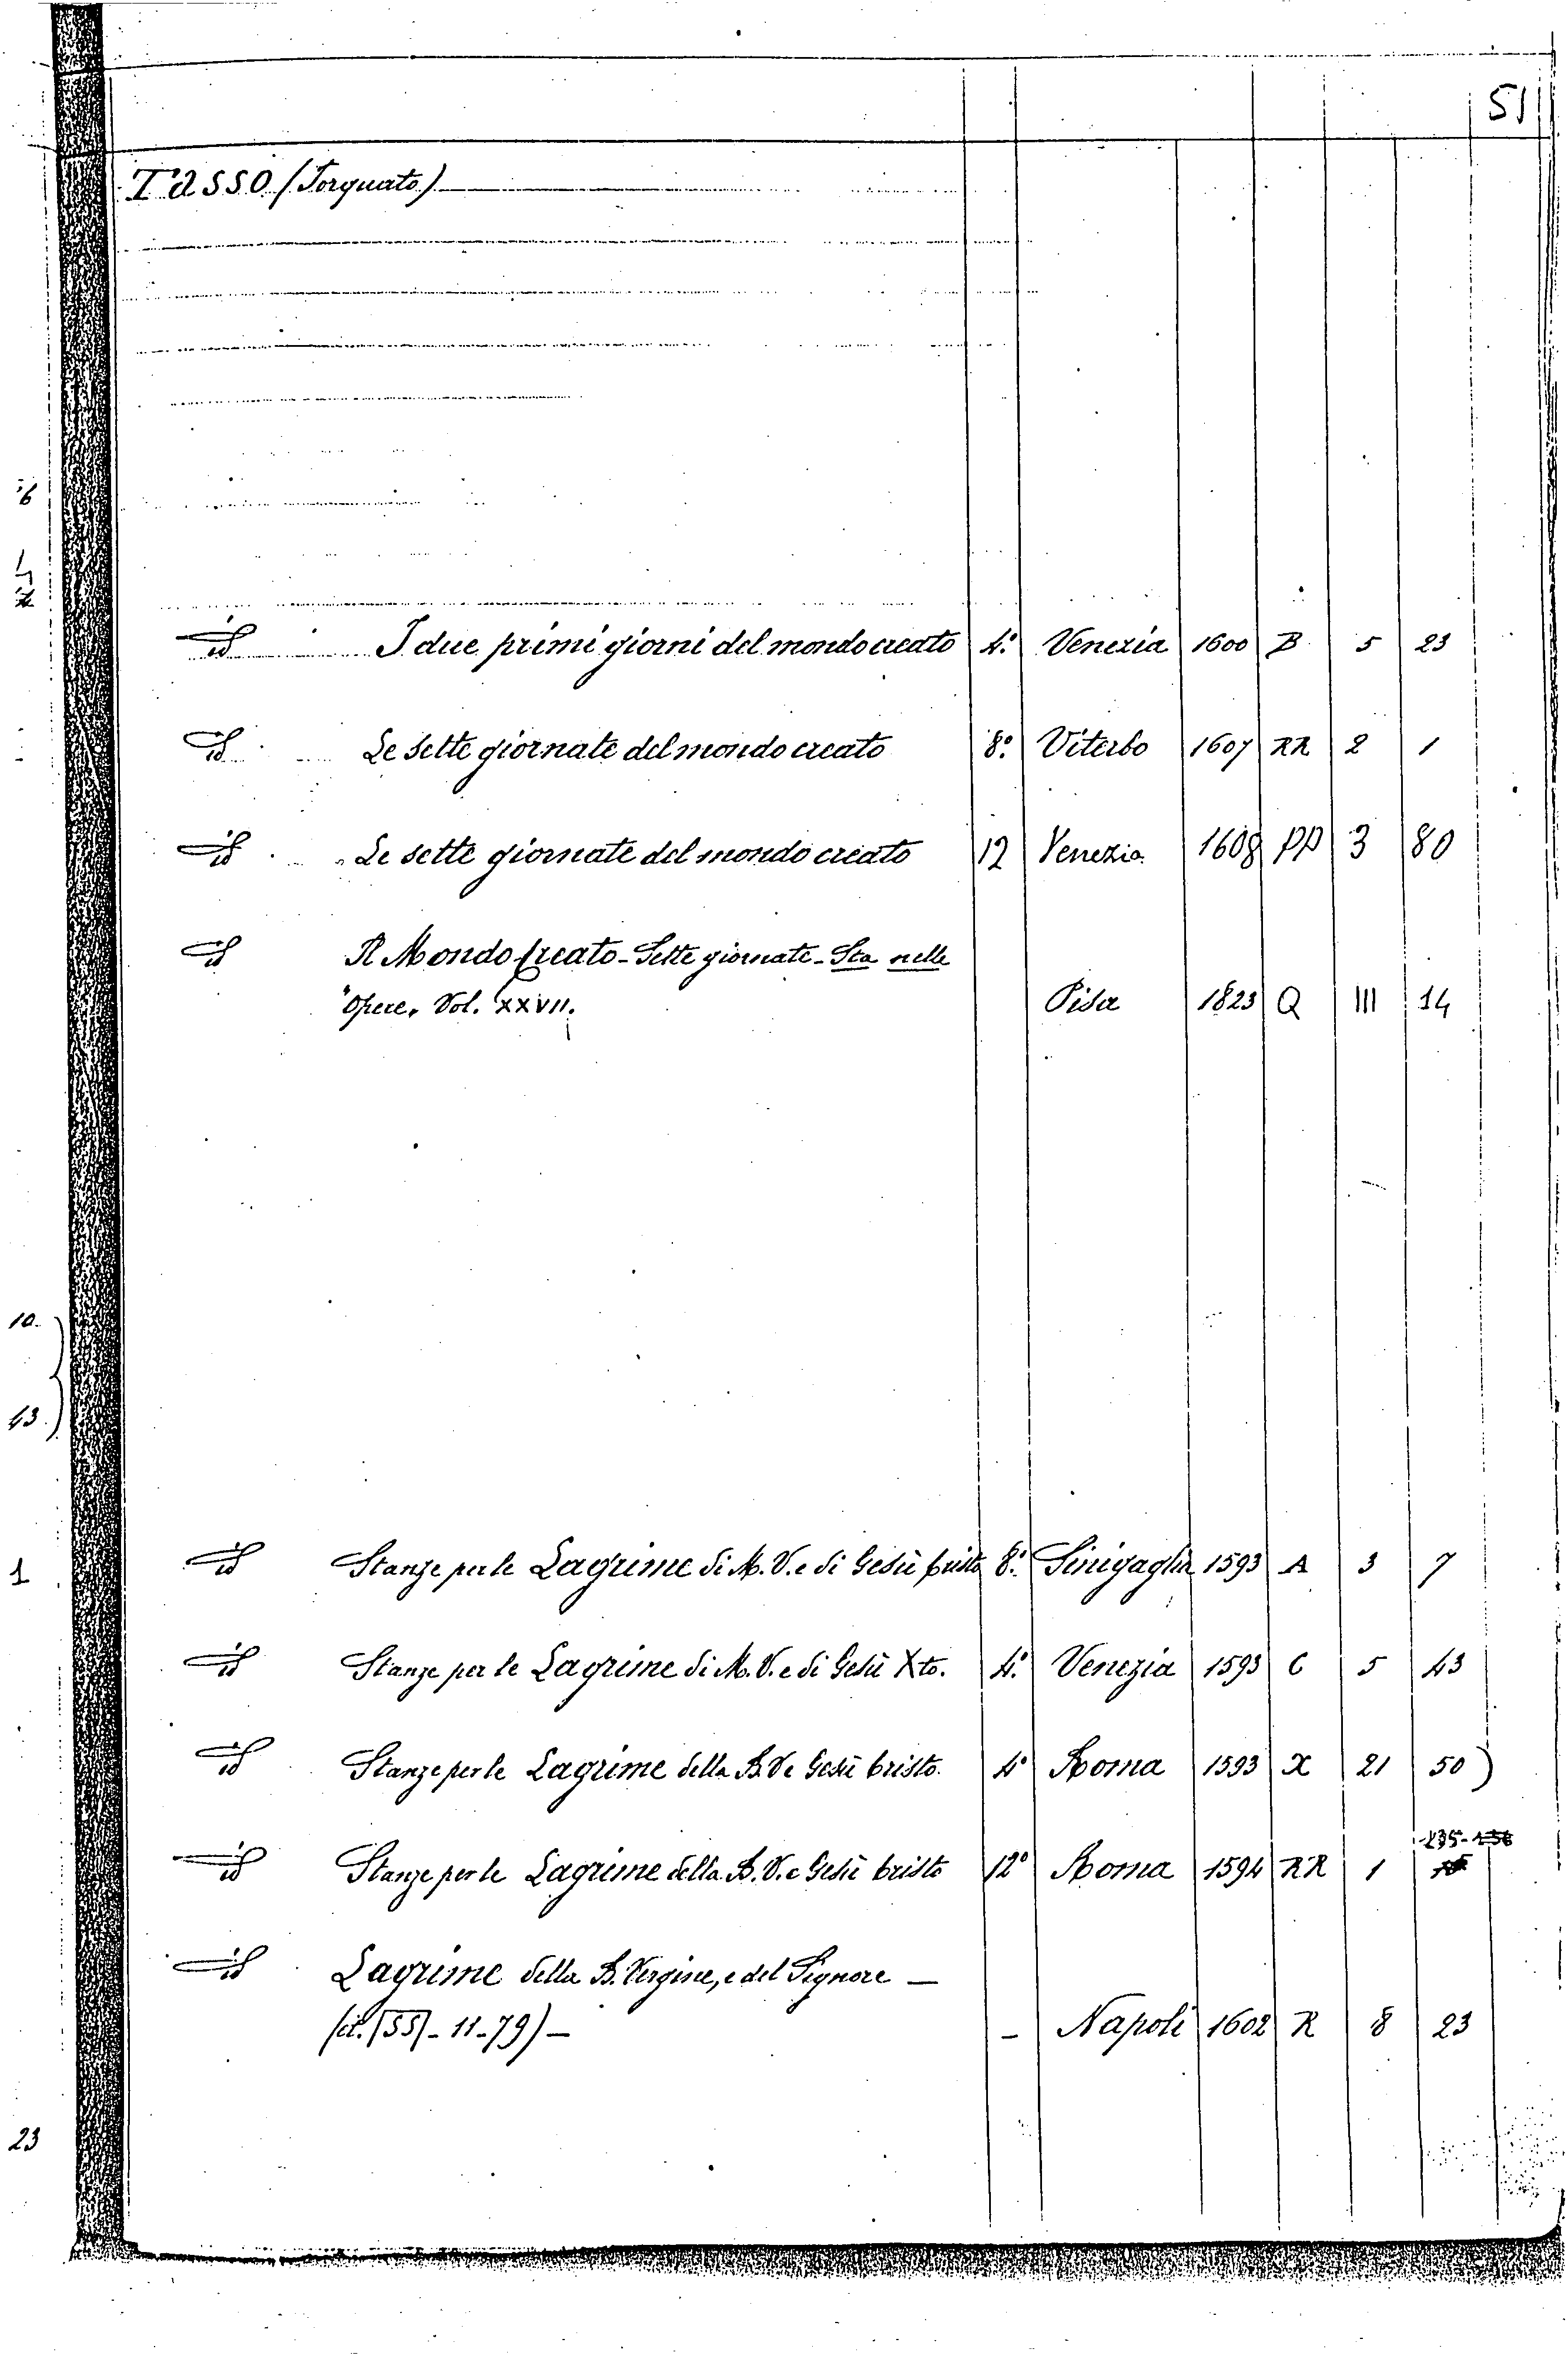 51
Tasso (Torquato)
id I due primi giorni del mondo creato 4.° Venezia 1600 B 5 23
id Le sette giornate del mondo creato 8.° Viterbo 1607 RR 2 1
id Le sette giornate del mondo creato 12 Venezia 1608 PP 3 80
id Il Mondo Creato - Sette giornate - Sta nelle
Opere. Vol. XXVII. Pisa 1823 Q III 14
10
43
1
id Stanze per le Lagrime di M. V. e di Gesù Cristo 8.° Sinigaglia 1593 A 3 7
id Stanze per le Lagrime di M. V. e di Gesù Xto. 4.° Venezia 1593 C 5 43
id Stanze per le Lagrime della B. V. e Gesù Cristo. 4° Roma 1593 X 21 50)
id Stanze per le Lagrime della B. V. e Gesù Cristo 12° Roma 1594 RR 1
id Lagrime della B. Vergine, e del Signore —
(ct. SS - 11 - 79) — – Napoli 1602 R 8 23
23